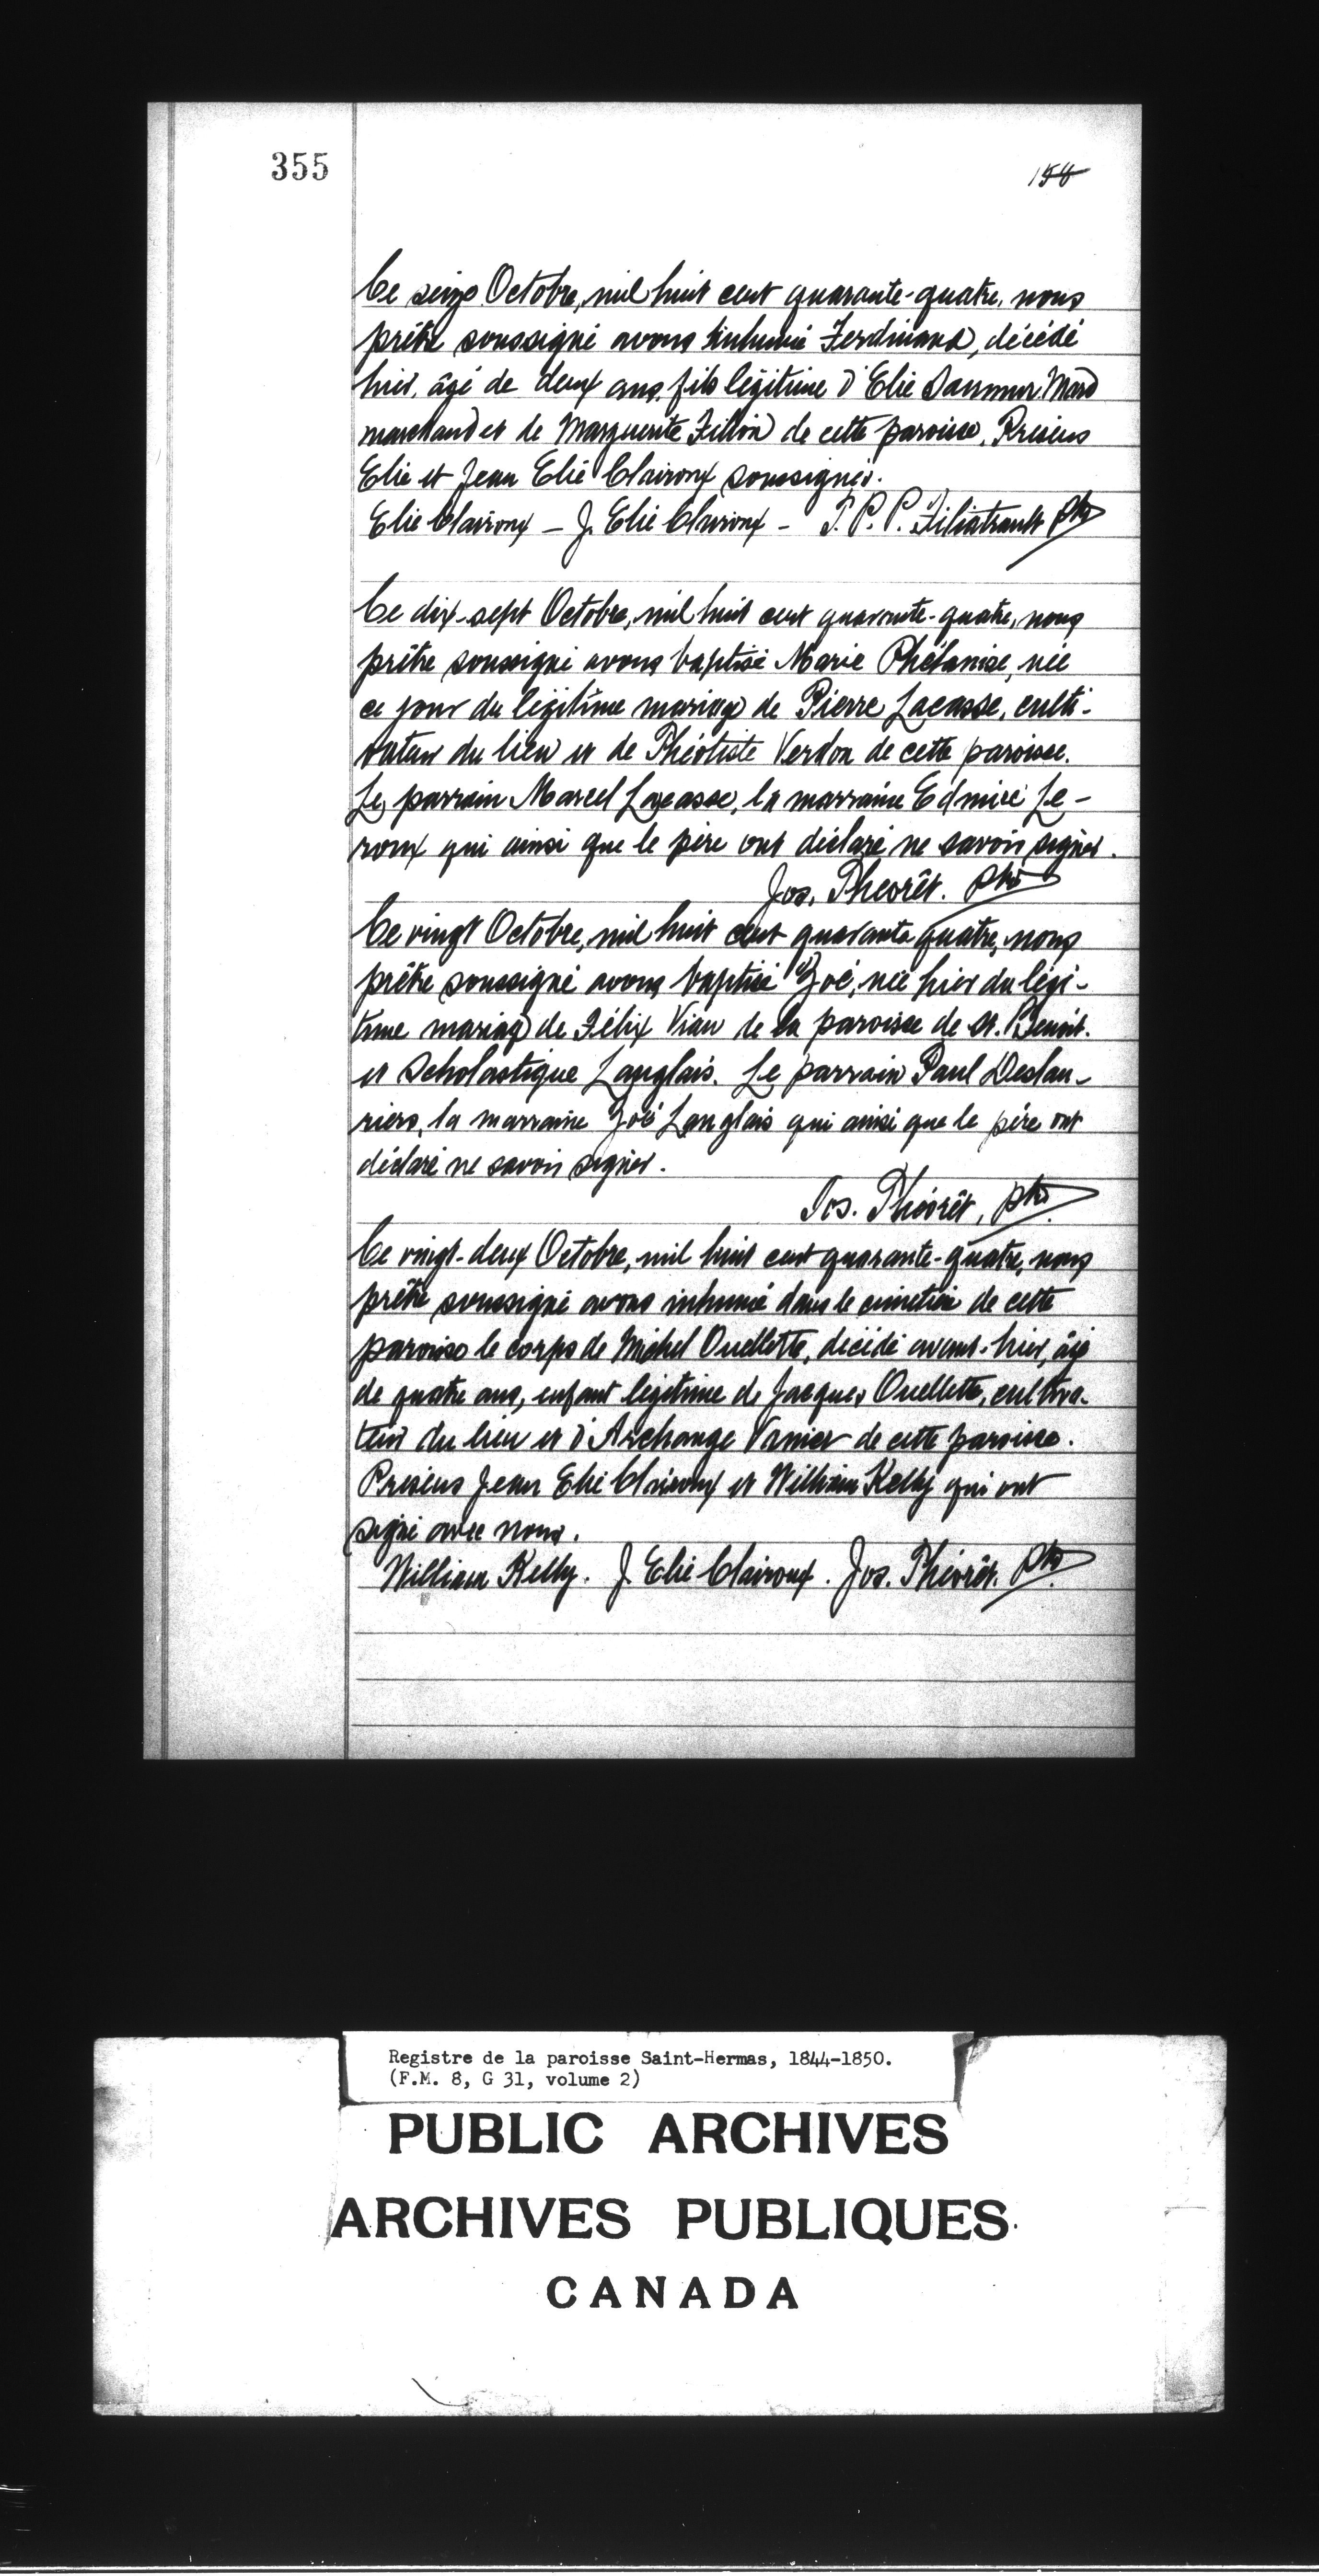 355
158
Ce seize Octobre, mil huit cent quarante-quatre, nous
prêtre soussigné avons inhumé Ferdinand, décédé
hier, âgé de deux ans, fils légitime d'Elie Saumur
marchand et de Marguerite Fillion de cette paroisse. Présens
Elie et Jean Elie Clairoux soussignés.
Elie Clairoux - J. Elie Clairoux - T. P. P. Filiatrault ptre
Ce dix-sept Octobre, mil huit cent quarante-quatre, nous
prêtre soussigné avons baptisé Marie Phélanise, née
ce jour du légitime mariage de Pierre Lacasse, culti-
vateur du lieu et de Théotiste Verdon de cette paroisse.
Le parrain Marcel Lacasse, la marraine Edmire Le-
roux qui ainsi que le père ont déclaré ne savoir signer.
Jos. Theorêt. ptre
Ce vingt Octobre, mil huit cent quarante quatre, nous
prêtre soussigné avons baptisé Zoé, née hier du légi-
time mariage de Félix Viau de la paroisse de St. Benoit.
et Scholastique Langlais. Le parrain Paul Deslau-
riers, la marraine Zoé Langlais qui ainsi que le père ont
déclaré ne savoir signer.
Jos. Théorêt, ptre
Ce vingt-deux Octobre, mil huit cent quarante-quatre, nous
prêtre soussigné avons inhumé dans le cimetière de cette
paroisse le corps de Michel Ouellette, décédé avant-hier, âgé
de quatre ans, enfant légitime de Jacques Ouellette, cultiva-
teur du lieu et d'Archange Vanier de cette paroisse.
Présens Jean Elie Clairoux et William Kelly qui ont
signé avec nous.
William Kelly. J. Elie Clairoux. Jos. Théorêt. ptre
Registre de la paroisse Saint-Hermas, 1844-1850.
(F.M. 8, G 31, volume 2)
PUBLIC ARCHIVES
ARCHIVES PUBLIQUES
CANADA